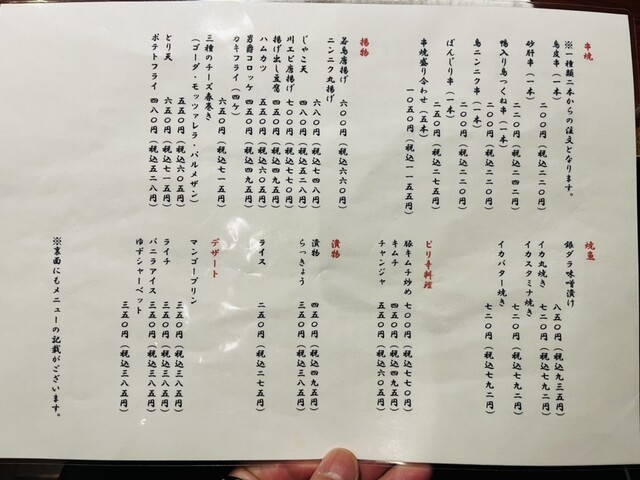 串焼
※一種類二本からの注文となります。
鳥皮串（一本） 二〇〇円（税込二二〇円）
砂肝串（一本） 二〇〇円（税込二二〇円）
鴨入り鳥つくね串（一本） 二二〇円（税込二四二円）
鳥ニンニク串（一本） 二〇〇円（税込二二〇円）
ぼんじり串（一本） 二〇〇円（税込二二〇円）
串焼盛り合わせ（五本） 二五〇円（税込二七五円）
一〇五〇円（税込一一五五円）
揚物
若鳥唐揚げ 六〇〇円（税込六六〇円）
ニンニク丸揚げ
六八〇円（税込七四八円）
じゃこ天 四八〇円（税込五二八円）
川エビ唐揚げ 七〇〇円（税込七七〇円）
揚げ出し豆腐 四五〇円（税込四九五円）
ハムカツ 五五〇円（税込六〇五円）
男爵コロッケ 四五〇円（税込四九五円）
カキフライ（四ケ）
六五〇円（税込七一五円）
三種のチーズ春巻き
（ゴーダ・モッツァレラ・パルメザン）
五五〇円（税込六〇五円）
とり天 六五〇円（税込七一五円）
ポテトフライ 四八〇円（税込五二八円）
焼魚
銀ダラ味噌漬け
八五〇円（税込九三五円）
イカ丸焼き 七二〇円（税込七九二円）
イカスタミナ焼き
七二〇円（税込七九二円）
イカバター焼き 七二〇円（税込七九二円）
ピリ辛料理
豚キムチ炒め 七〇〇円（税込七七〇円）
キムチ 四五〇円（税込四九五円）
チャンジャ 五五〇円（税込六〇五円）
漬物
漬物 四五〇円（税込四九五円）
らっきょう 三五〇円（税込三八五円）
ライス 二五〇円（税込二七五円）
デザート
マンゴープリン
三五〇円（税込三八五円）
ライチ 三五〇円（税込三八五円）
バニラアイス 三五〇円（税込三八五円）
ゆずシャーベット
三五〇円（税込三八五円）
※裏面にもメニューの記載がございます。